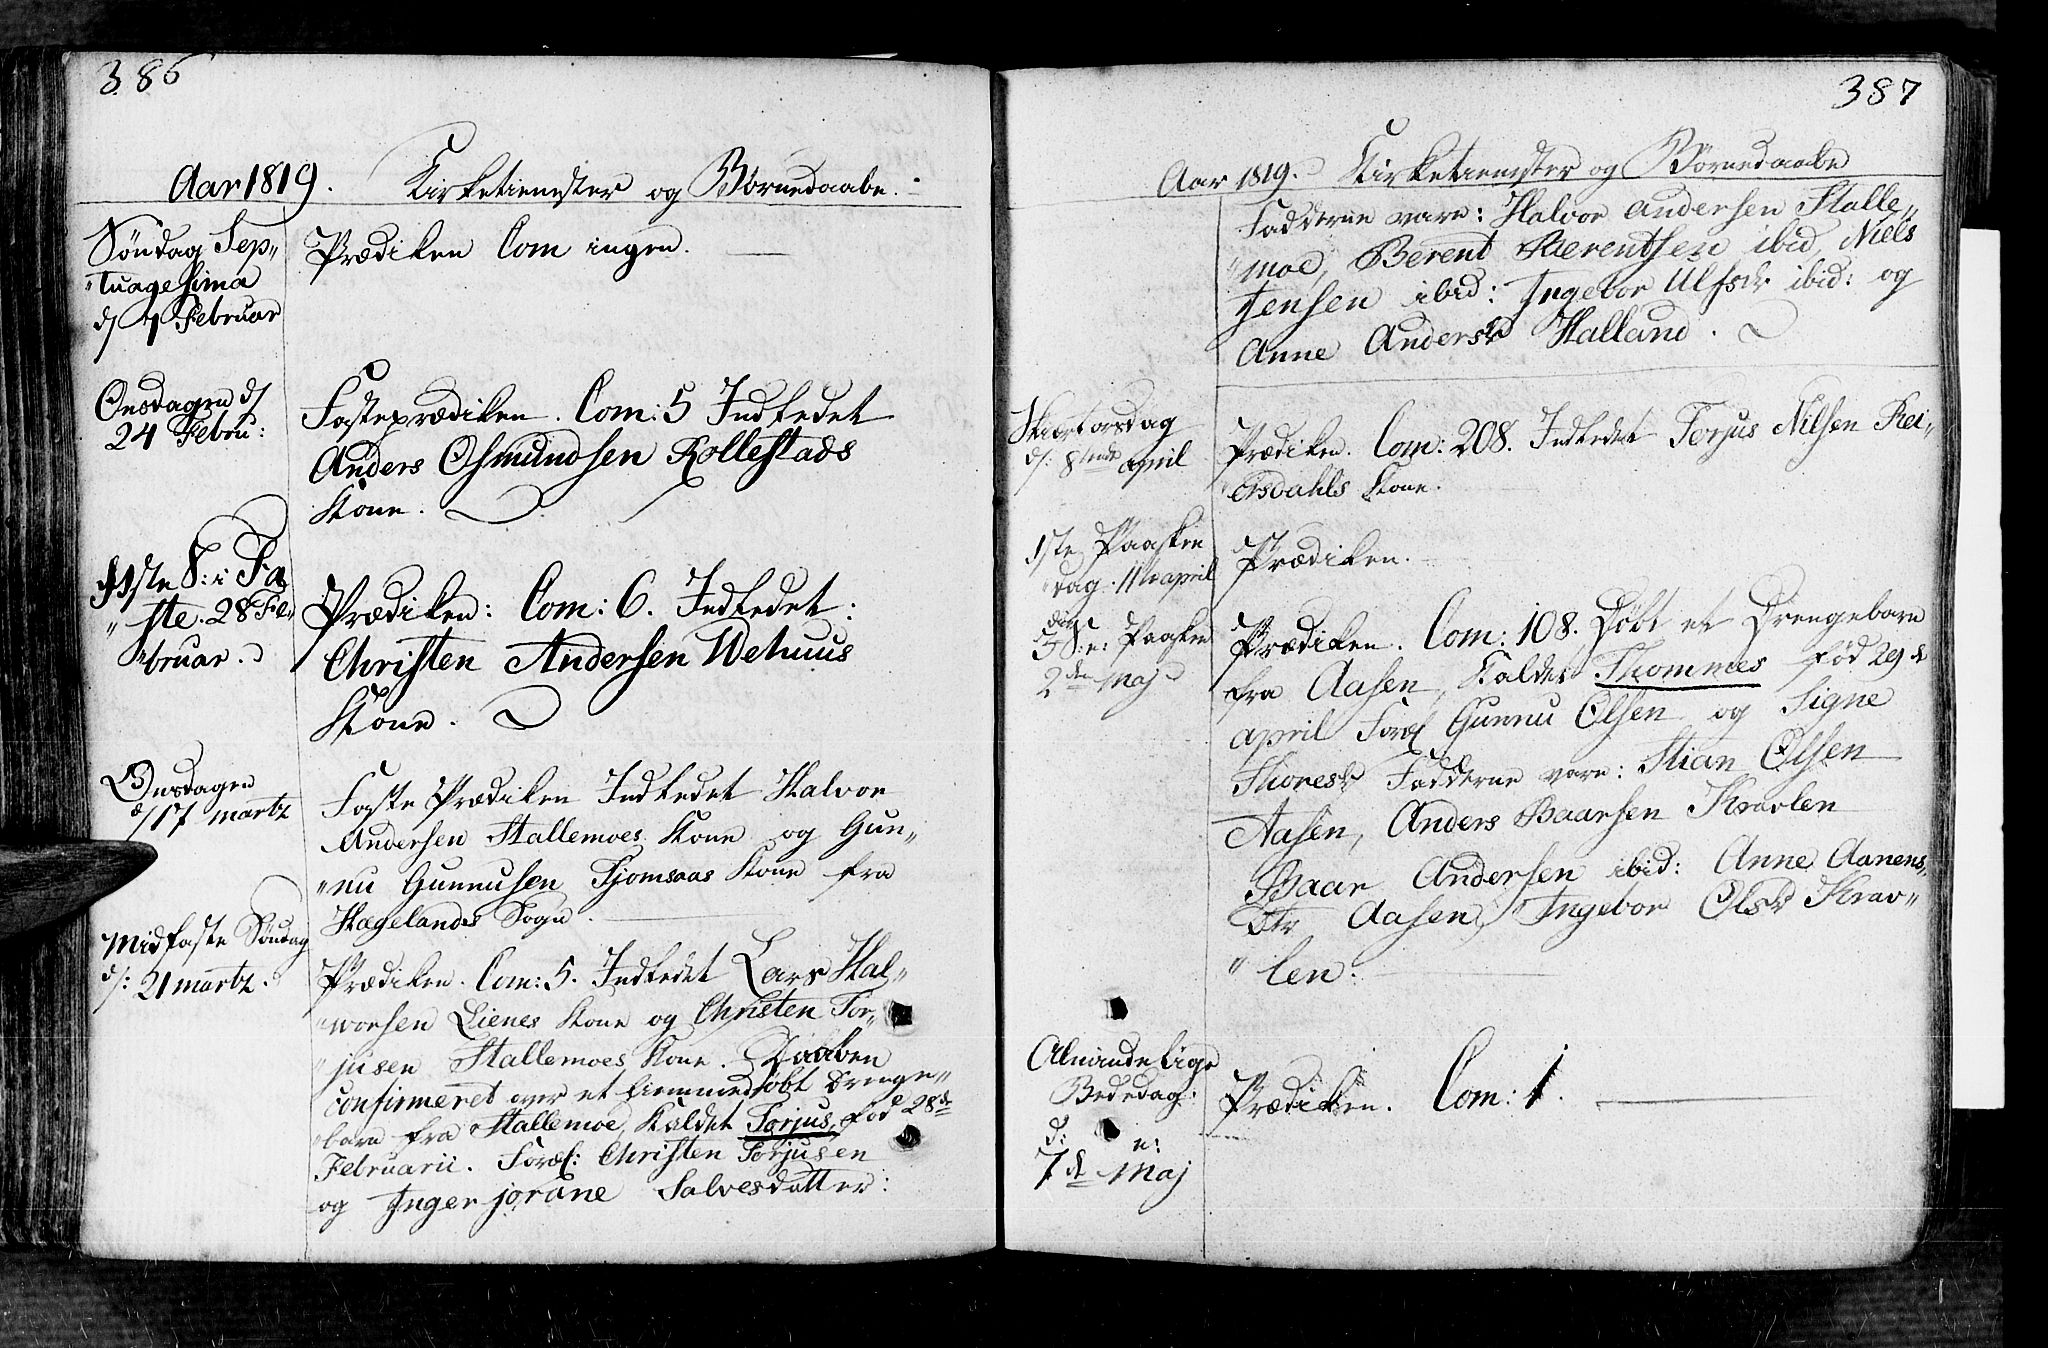 386
Aar 1819. Kirketienester og Börnedaabe.
Söndag Sep„
„tuagesima
d/ 7 Februar
Prædiken Com ingen.
Onsdagen d/
24 Febru:
Fasteprædiken. Com: 5 Indledet
Anders Osmundsen Rollestads
Kone.
1ste S: i Fa
„ste. 28 Fe„
„bruar.
Prædiken: Com: 6. Indledet:
Christen Andersen Wehuus
Kone.
Onsdagen
d/ 17 martz
Faste Prædiken Indledet Halvor
Andersen Stallemoes Kone og Gun„
„nu Gunnusen Tjomsaas Kone fra
Hægelands Sogn.
Midfaste Söndag
d/: 21 martz.
Prædiken. Com: 5. Indledet Lars Hal„
„worsen Lienes Kone og Christen Tor„
„jusen Stallemoes Kone. Daaben
confirmeret over et hiemmedöbt Drenge„
„barn fra Stallemoe, Kaldet Torjus, föd 28de
Februarii. Foræl: Christen Torjusen
og Inger jorane Salvesdatter:
387
Aar 1819. Kirketienester og Börnedaabe
Fadderne vare: Halvor Andersen Stalle„
„moe, Berent Berentsen ibid, Niels
Jensen ibid: Ingebor Ulfsdr ibid: og
Anne Andersdr Halland.
Skiertorsdag
d/: 8tende april
Prædiken. Com: 208. Indledet Torjus Nilsen Rei„
„ersdahls Kone.
1ste Paaske
„dag. 11te april
Prædiken.
3die S: e: Paaske
2den Maj
Prædiken. Com: 108. Döbt et Drengebarn
fra Aasen, Kaldet Thommes föd 29d
april Foræl Gunnu Olsen og Signe
Thoresdr Fadderne vare: Stian Olsen
Aasen, Anders Baarsen Kravlen
Baar Andersen ibid: Anne Aanens„
Dtr Aasen, Ingebor Olsdr Krav„
„len:
Almindelige
Bededag:
d: e:
7d Maj
Prædiken. Com: 1.